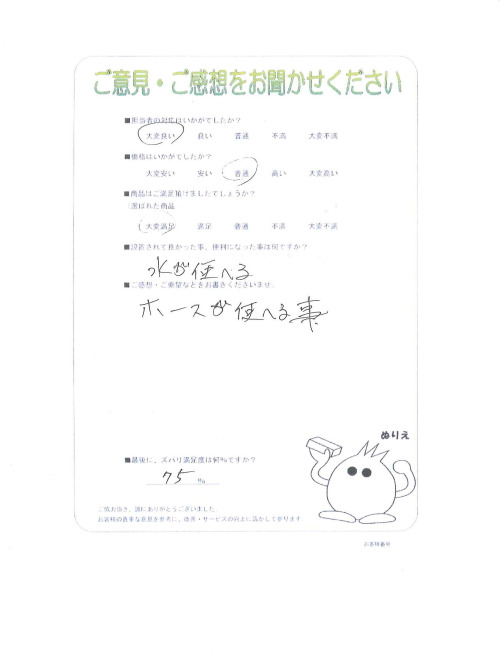 ご意見・ご感想をお聞かせください
■担当者の対応はいかがでしたか？
大変良い 良い 普通 不満 大変不満
■価格はいかがでしたか？
大変安い 安い 普通 高い 大変高い
■商品はご満足頂けましたでしょうか？
選ばれた商品
大変満足 満足 普通 不満 大変不満
■設置されて良かった事、便利になった事は何ですか？
水が使へる
■ご感想・ご要望などをお書きくださいませ。
ホースが使へる事
ぬりえ
■最後に、ズバリ満足度は何％ですか？
75 %
ご協力頂き、誠にありがとうございました。
お客様の貴重な意見を参考に、改善・サービスの向上に活かして参ります。
お客様番号